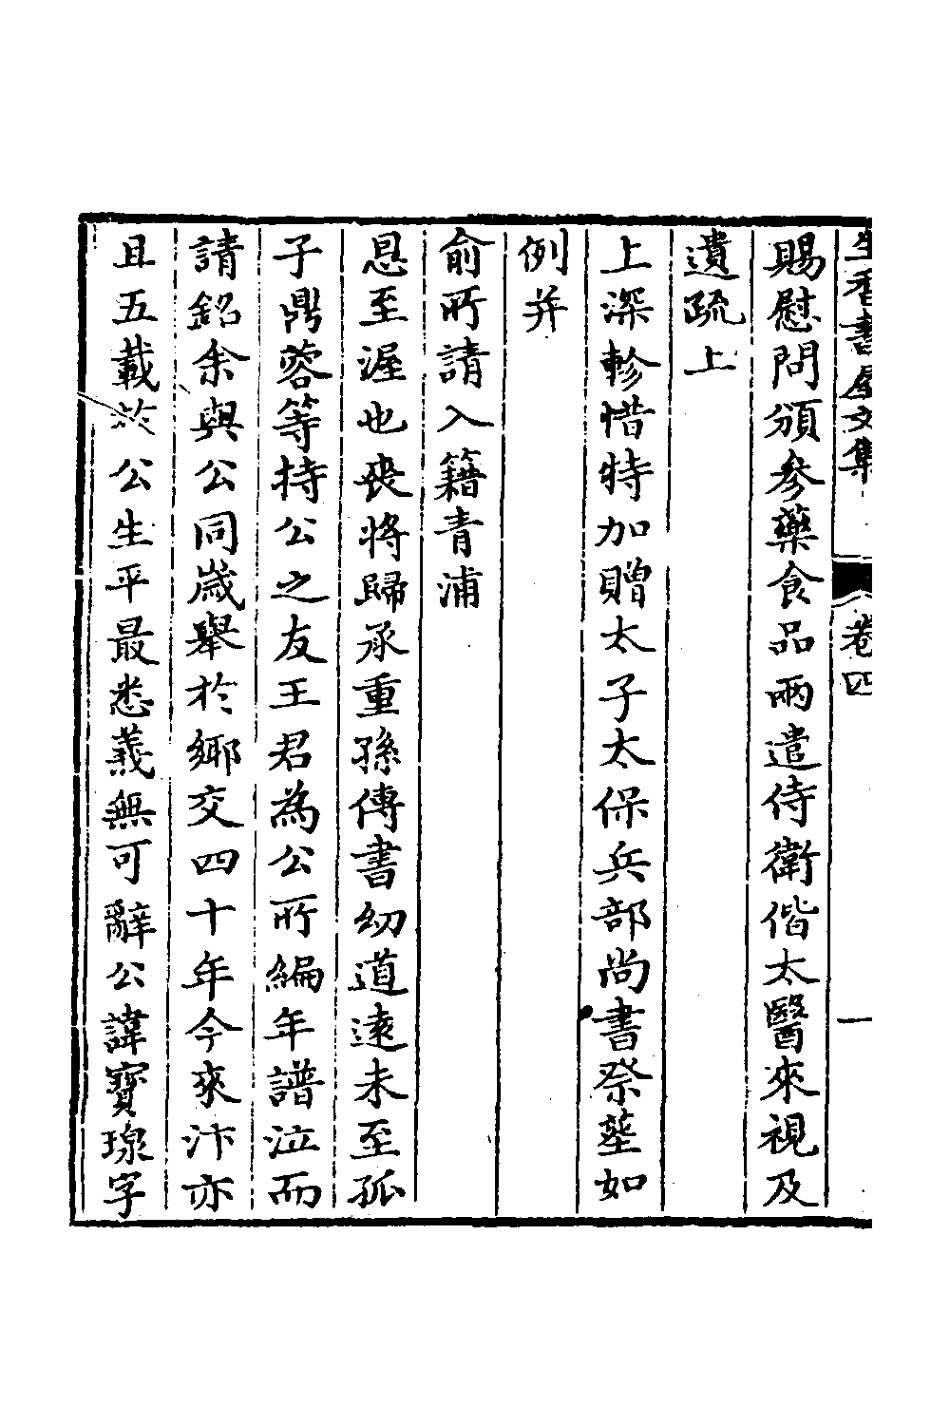 生香書屋文集 卷四 一
賜慰問頒參藥食品兩遣侍衛偕太醫來視及
遺疏上
上深軫惜特加贈太子太保兵部尚書祭塟如
例并
俞所請入籍青浦
恩至渥也喪將歸承重孫傳書幼道遠未至孤
子鼎蓉等持公之友王君為公所編年譜泣而
請銘余與公同歲舉於鄉交四十年今來汴亦
且五載於公生平最悉義無可辭公諱寶瑔字